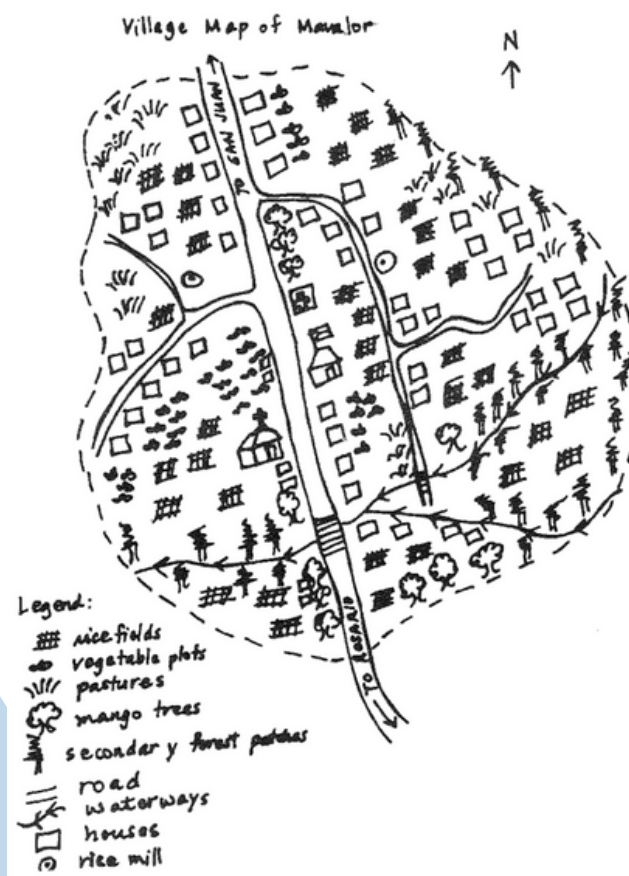 Village Map of Mavalor
N
TO SAN JUAN
TO ROSARIO
Legend:
rice fields
vegetable plots
pastures
mango trees
secondary forest patches
road
waterways
houses
rice mill